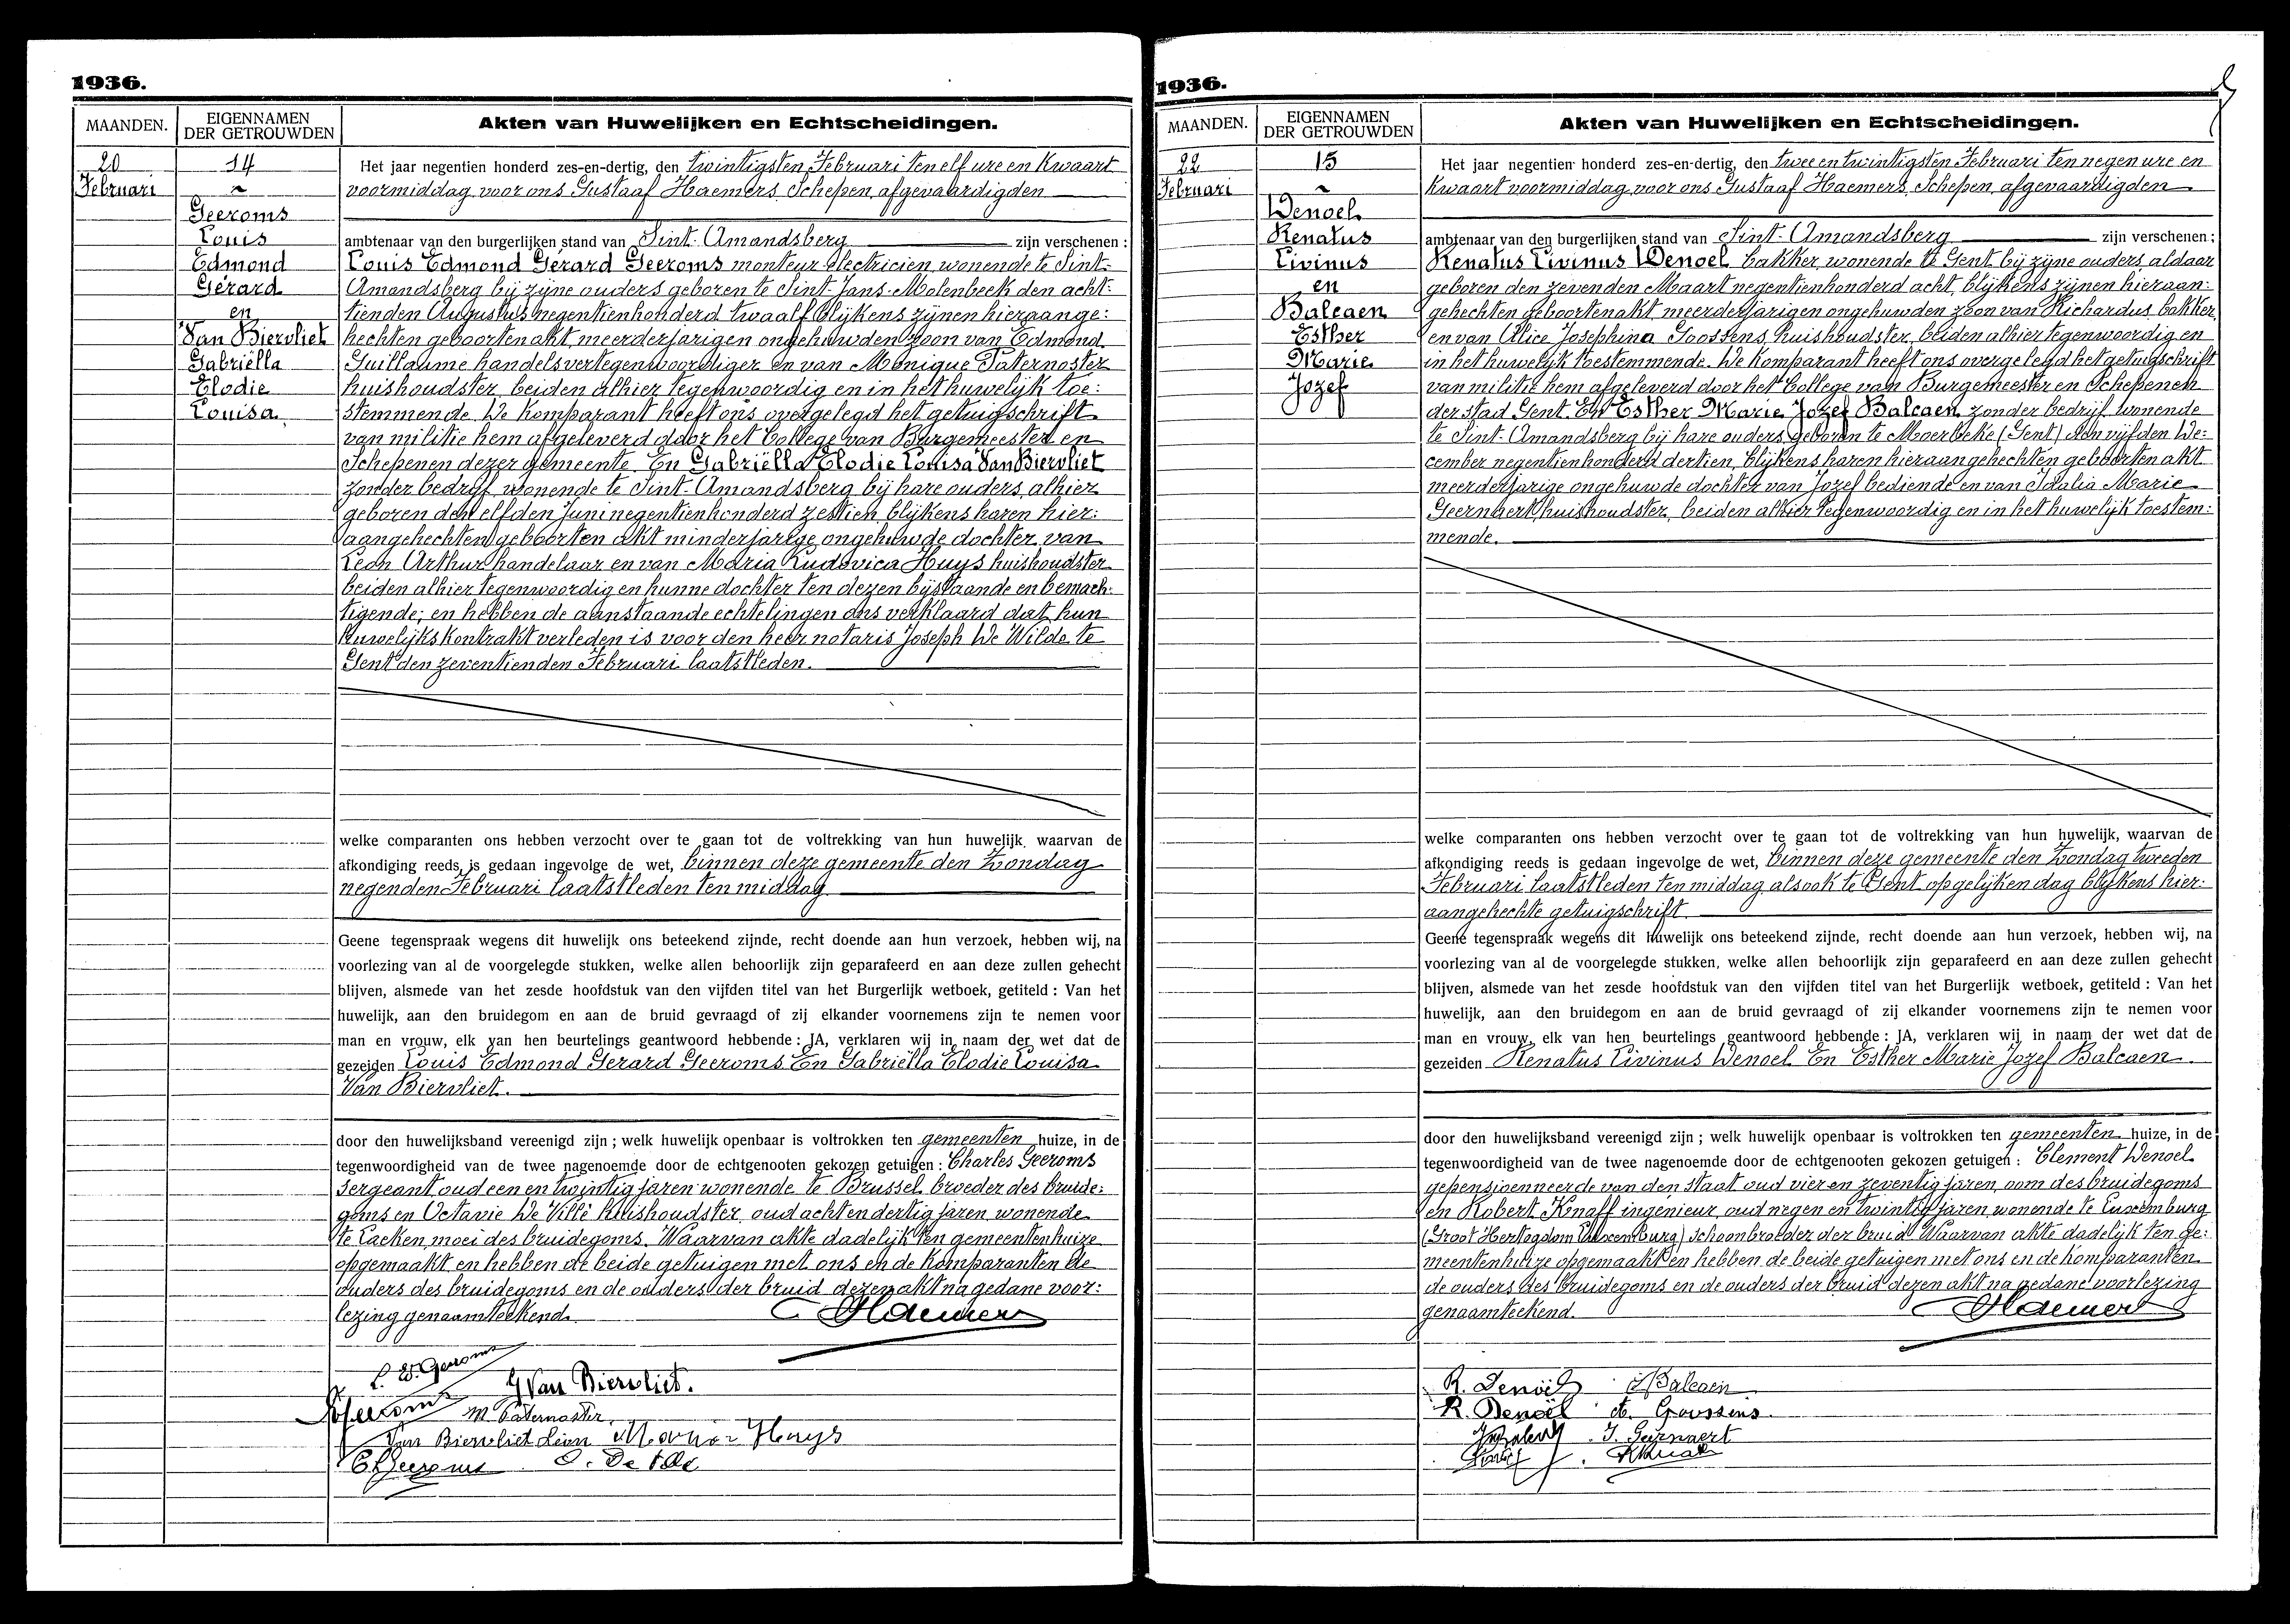 1936.
MAANDEN.
EIGENNAMEN
DER GETROUWDEN
Akten van Huwelijken en Echtscheidingen.
20
Februari
14
~
Geeroms
Louis
Edmond
Gérard
en
Van Biervliet
Gabriëlla
Elodie
Louisa
Het jaar negentien honderd zes-en-dertig, den twintigsten Februari ten elf ure en kwaart
voormiddag voor ons Gustaaf Haemers Schepen, afgevaardigden
ambtenaar van den burgerlijken stand van Sint-Amandsberg zijn verschenen :
Louis Edmond Gérard Geeroms monteur electricien, wonende te Sint-
Amandsberg bij zijne ouders geboren te Sint-Jans-Molenbeek den acht:
tienden Augustus negentienhonderd twaalf blijkens zijnen hieraange:
hechten geboorten akt, meerderjarigen ongehuwden zoon van Edmond
Guillaume handelsvertegenwoordiger en van Monique Paternoster
huishoudster, beiden alhier tegenwoordig en in het huwelijk toe:
stemmende. De komparant heeft ons overgelegd het getuigschrift
van militie hem afgeleverd door het College van Burgemeester en
Schepenen dezer gemeente. En Gabriëlla Elodie Louisa Van Biervliet
zonder bedrijf, wonende te Sint-Amandsberg bij hare ouders, alhier
geboren den elfden Juni negentienhonderd zestien, blijkens haren hier:
aangehechten geboorten akt minderjarige ongehuwde dochter van
Leon Arthur handelaar en van Maria Ludovica Huys huishoudster
beiden alhier tegenwoordig en hunne dochter ten dezen bijstaande en bemach:
tigende; en hebben de aanstaande echtelingen ons verklaard dat hun
huwelijkskontrakt verleden is voor den heer notaris Joseph De Wilde te
Gent den zeventienden Februari laatstleden.
welke comparanten ons hebben verzocht over te gaan tot de voltrekking van hun huwelijk, waarvan de
afkondiging reeds is gedaan ingevolge de wet, binnen deze gemeente den Zondag
negenden Februari laatstleden ten middag
Geene tegenspraak wegens dit huwelijk ons beteekend zijnde, recht doende aan hun verzoek, hebben wij, na
voorlezing van al de voorgelegde stukken, welke allen behoorlijk zijn geparafeerd en aan deze zullen gehecht
blijven, alsmede van het zesde hoofdstuk van den vijfden titel van het Burgerlijk wetboek, getiteld : Van het
huwelijk, aan den bruidegom en aan de bruid gevraagd of zij elkander voornemens zijn te nemen voor
man en vrouw, elk van hen beurtelings geantwoord hebbende : JA, verklaren wij in naam der wet dat de
gezeiden Louis Edmond Gerard Geeroms En Gabriëlla Elodie Louisa
Van Biervliet.
door den huwelijksband vereenigd zijn ; welk huwelijk openbaar is voltrokken ten gemeenten huize, in de
tegenwoordigheid van de twee nagenoemde door de echtgenooten gekozen getuigen : Charles Geeroms
Sergeant, oud een en twintig jaren wonende te Brussel, broeder des bruide:
goms en Octavie De Villé huishoudster, oud acht en dertig jaren, wonende
te Laeken, moei des bruidegoms. Waarvan akte dadelijk ten gemeentenhuize
opgemaakt en hebben de beide getuigen met ons en de komparanten de
ouders des bruidegoms en de ouders der bruid dezen akt na gedane voor:
lezing genaamteekend.
Haemers
L. E. Geeroms
G Van Biervliet.
Geeroms
M Paternoster
Van Biervliet Léon Maria Huys
C Geeroms
1936.
MAANDEN.
EIGENNAMEN
DER GETROUWDEN
Akten van Huwelijken en Echtscheidingen.
22
Februari
15
~
Denoel
Renatus
Livinus
en
Balcaen
Esther
Marie
Jozef
Het jaar negentien honderd zes-en-dertig, den twee en twintigsten Februari ten negen ure en
kwaart voormiddag voor ons Gustaaf Haemers Schepen, afgevaardigden
ambtenaar van den burgerlijken stand van Sint-Amandsberg zijn verschenen ;
Renatus Livinus Denoel, bakker, wonende te Gent bij zijne ouders, aldaar
geboren den zevenden Maart negentienhonderd acht, blijkens zijnen hieraan:
gehechten geboortenakt, meerderjarigen ongehuwden zoon van Richardus bakker,
en van Alice Josephina Goossens, huishoudster, beiden alhier tegenwoordig en
in het huwelijk toestemmende. De komparant heeft ons overgelegd het getuigschrift
van militie hem afgeleverd door het College van Burgemeester en Schepenen
der stad Gent. En Esther Marie Jozef Balcaen, zonder bedrijf, wonende
te Sint-Amandsberg bij hare ouders, geboren te Moerbeke (Gent) den vijfden De:
cember negentienhonderd dertien, blijkens haren hieraangehechten geboorten akt
meerderjarige ongehuwde dochter van Jozef bediende en van Idalia Marie
Geernaert, huishoudster, beiden alhier tegenwoordig en in het huwelijk toestem:
mende.
welke comparanten ons hebben verzocht over te gaan tot de voltrekking van hun huwelijk, waarvan de
afkondiging reeds is gedaan ingevolge de wet, binnen deze gemeente den Zondag tweeden
Februari laatstleden ten middag alsook te Gent op gelijken dag blijkens hier:
aangehechte getuigschrift.
Geene tegenspraak wegens dit huwelijk ons beteekend zijnde, recht doende aan hun verzoek, hebben wij, na
voorlezing van al de voorgelegde stukken, welke allen behoorlijk zijn geparafeerd en aan deze zullen gehecht
blijven, alsmede van het zesde hoofdstuk van den vijfden titel van het Burgerlijk wetboek, getiteld : Van het
huwelijk, aan den bruidegom en aan de bruid gevraagd of zij elkander voornemens zijn te nemen voor
man en vrouw, elk van hen beurtelings geantwoord hebbende : JA, verklaren wij in naam der wet dat de
gezeiden Renatus Livinus Denoel En Esther Marie Jozef Balcaen.
door den huwelijksband vereenigd zijn ; welk huwelijk openbaar is voltrokken ten gemeenten huize, in de
tegenwoordigheid van de twee nagenoemde door de echtgenooten gekozen getuigen : Clement Denoel
gepensioenneerde van den staat oud vier en zeventig jaren, oom des bruidegoms
en Robert Knaff ingénieur, oud negen en twintig jaren, wonende te Luxemburg
(Groot Hertogdom Luxemburg) schoonbroeder der bruid. Waarvan akte dadelijk ten ge:
meentenhuize opgemaakt en hebben de beide getuigen met ons en de komparanten
de ouders des bruidegoms en de ouders der bruid dezen akt na gedane voorlezing
genaamteekend.
Haemers
R. Denoël Balcaen
R. Denoël A. Goossens
J. Geernaert